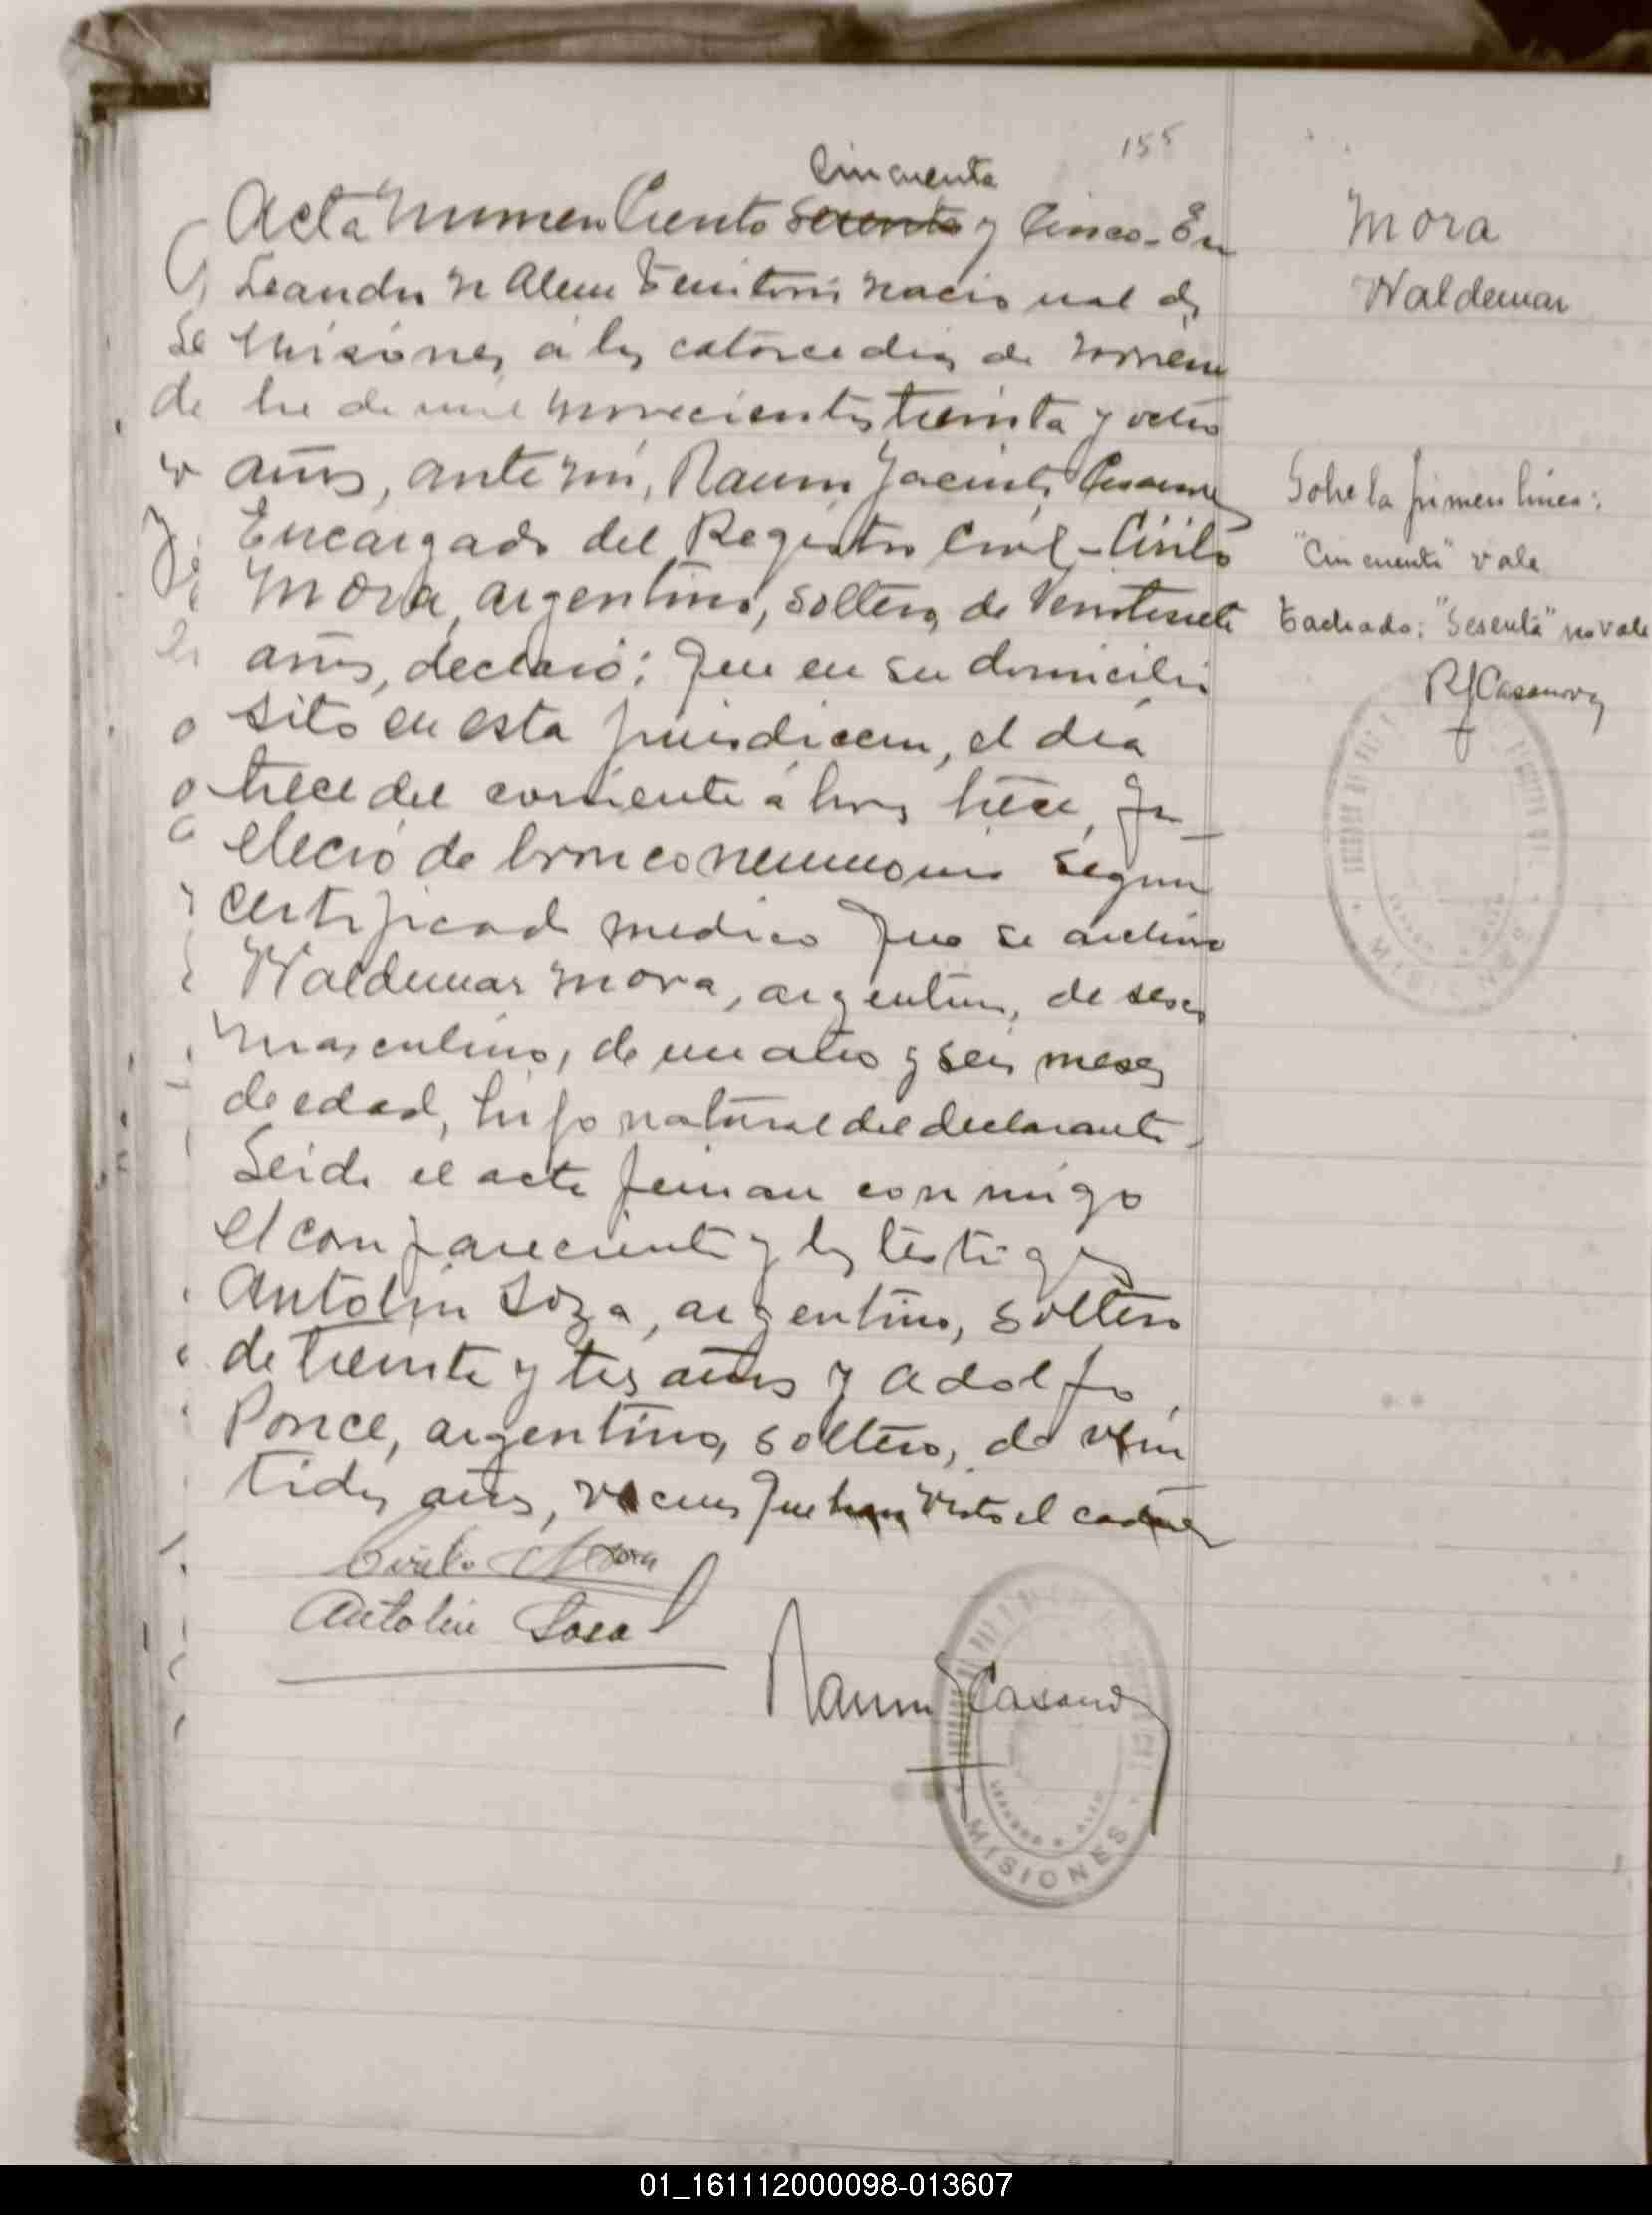 155
Cincuenta
Acta Numero Ciento Sesenta y Cinco.- En
Leandro N Alem Territorio Nacional de
Misiones, a los catorce dias de Noviem
bre de mil novecientos treinta y ocho
años, ante mi, Raum Jacinto Casanova
Encargado del Registro Civil - Cirilo
Mora, argentino, soltero, de Veintisiete
años, declaró: Que en su domicilio
sito en esta jurisdiccion, el dia
trece del corriente á horas trece, fa_
lleció de bronconeumonia segun
certificado medico que se archiva
Waldemar Mora, argentino, de sexo
masculino, de un año y seis meses
de edad, hijo natural del declarante.
Leida el acta firman conmigo
el compareciente y los testigos
Antolin Soza, argentino, soltero
de treinta y tres años y Adolfo
Ponce, argentino, soltero, de vein
tidos años, vecinos que han visto el cadaver
Cirilo Mora
Antolin Sosa
Raum J Casanova
MISIONES
Mora
Waldemar
Sobre la primera linea:
"Cincuenta" vale
Tachado: "Sesenta" no vale
RJCasanova
MISIONES
01_161112000098-013607